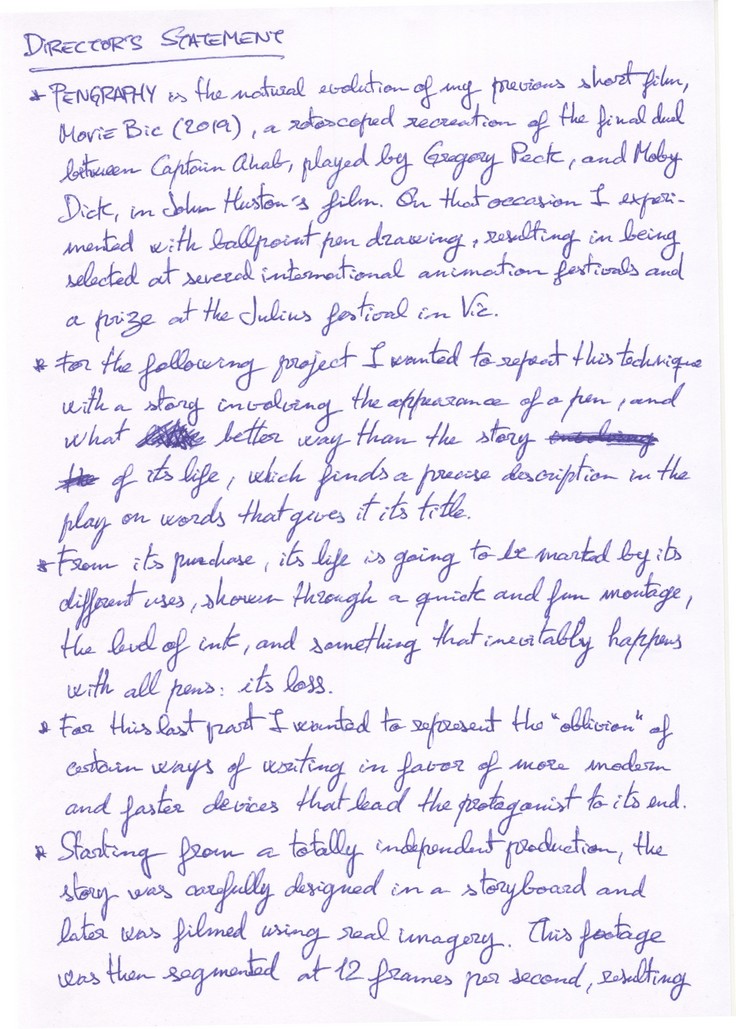 DIRECTOR'S STATEMENT
* PENGRAPHY is the natural evolution of my previous short film,
Movie Bic (2019), a rotoscoped recreation of the final duel
between Captain Ahab, played by Gregory Peck, and Moby
Dick, in John Huston's film. On that occasion I experi-
mented with ballpoint pen drawing, resulting in being
selected at several international animation festivals and
a prize at the Julius festival in Vic.
* For the following project I wanted to repeat this technique
with a story involving the appearance of a pen, and
what better way than the story
of its life, which finds a precise description in the
play on words that gives it its title.
* From its purchase, its life is going to be marked by its
different uses, shown through a quick and fun montage,
the level of ink, and something that inevitably happens
with all pens: its loss.
* For this last part I wanted to represent the "oblivion" of
certain ways of writing in favor of more modern
and faster devices that lead the protagonist to its end.
* Starting from a totally independent production, the
story was carefully designed in a storyboard and
later was filmed using real imagery. This footage
was then segmented at 12 frames per second, resulting